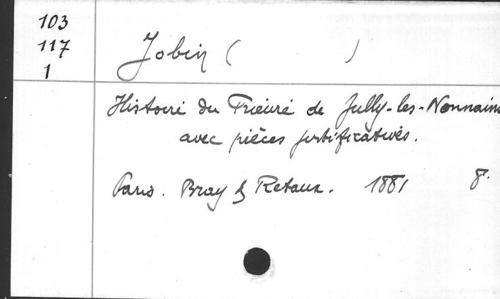 103
117
1
Jobin ( )
Histoire du Prieuré de Jully-les-Nonnains
avec pièces justificatives.
Paris. Bray & Retaux. 1881 8°